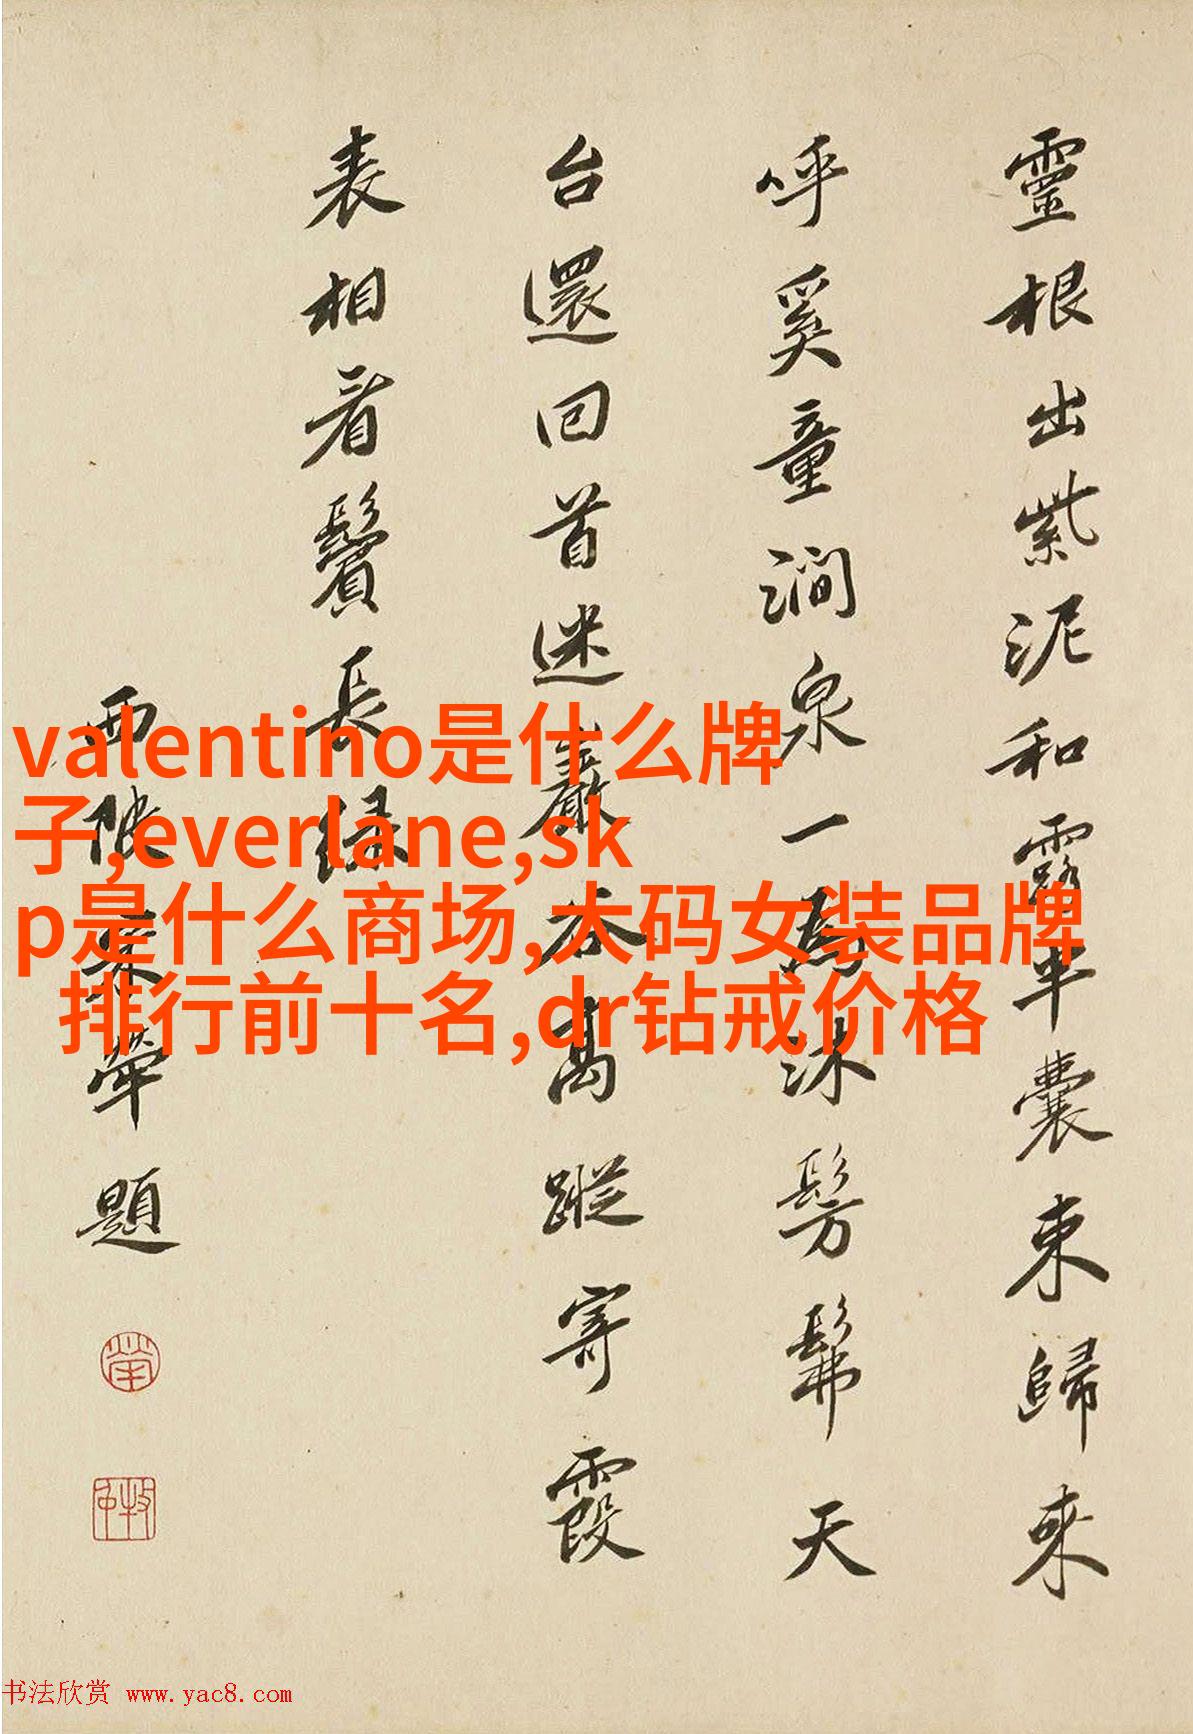 靈根出紫泥和露半囊束歸來
呼奚童澗泉一為沐髣髴天
台還回首迷巖谷高蹤寄霞
表相看鬢長綠
西陂宋犖題
犖
valentino是什么牌
子,everlane,sk
p是什么商场,大码女装品牌
排行前十名,dr钻戒价格
书法欣赏 www.yac8.com